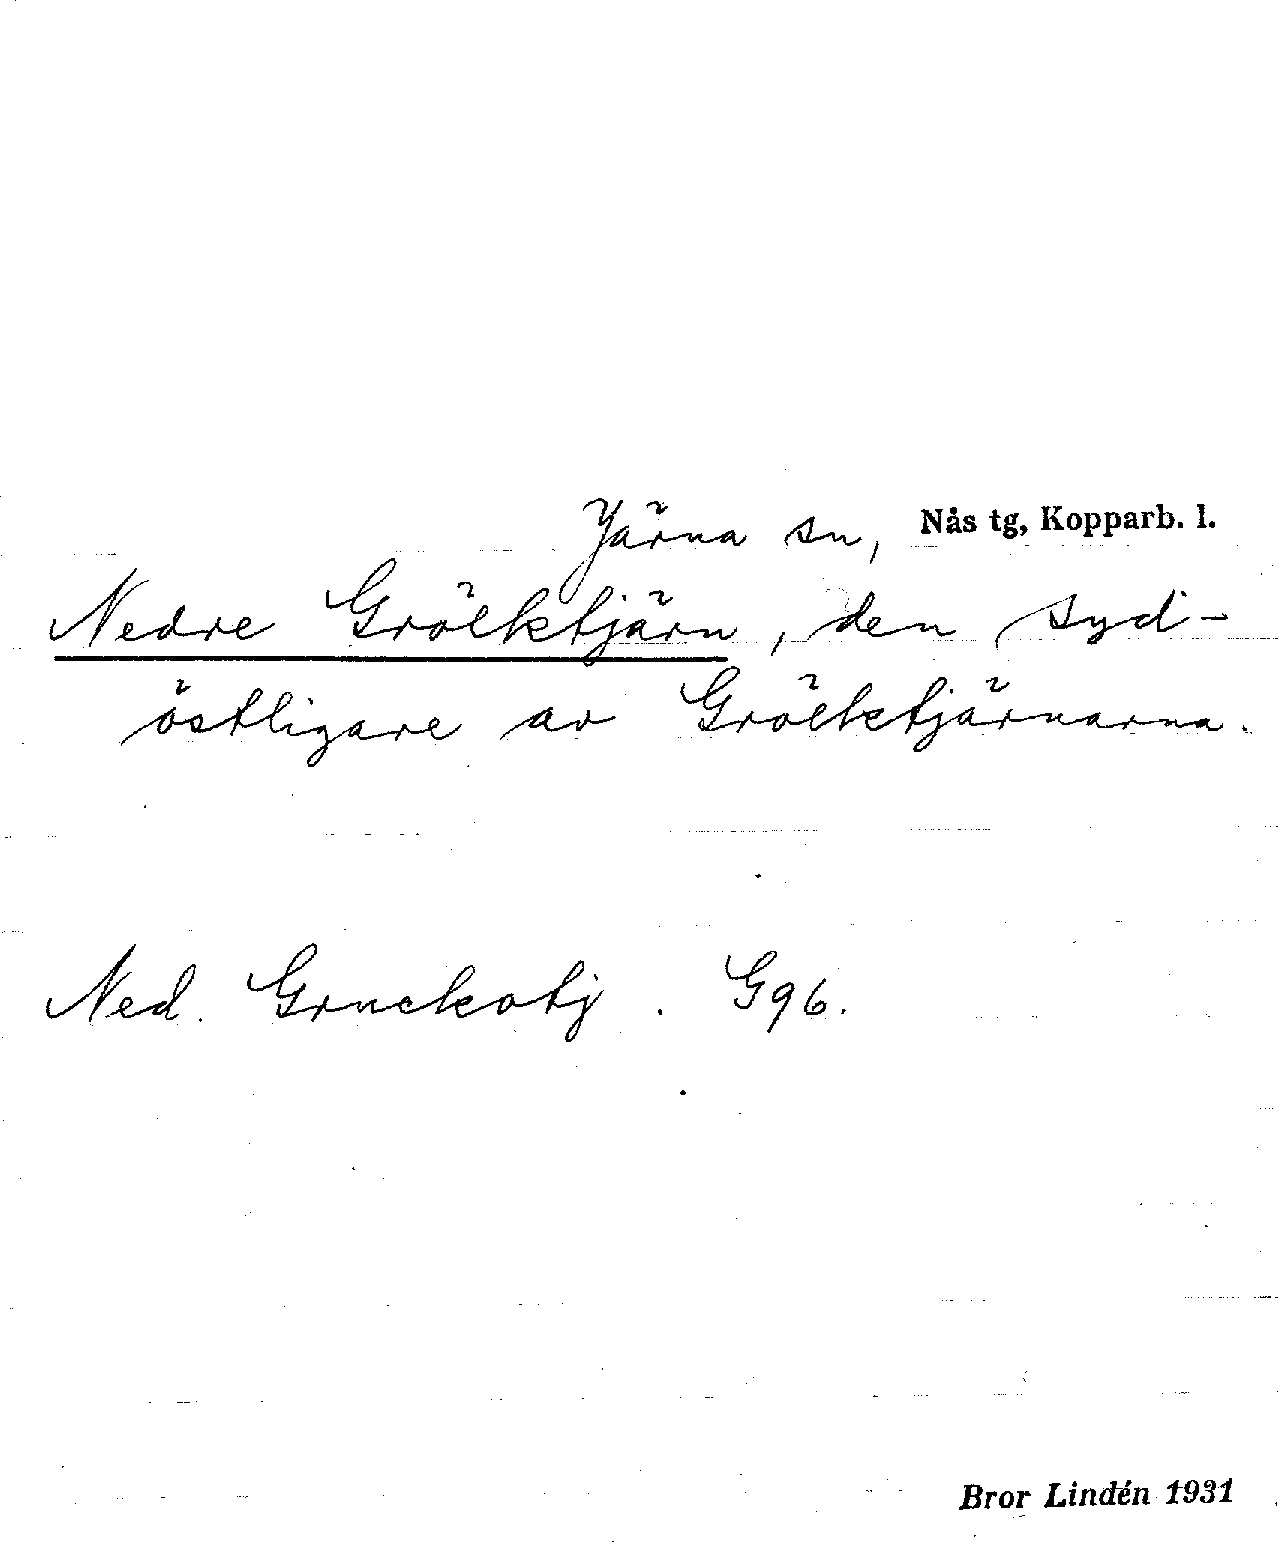 Järna sn, Nås tg, Kopparb. l.
Nedre Gröcktjärn, den syd-
östligare av Gröcktjärnarna.
Ned. Gruckotj. G96.
Bror Lindén 1931